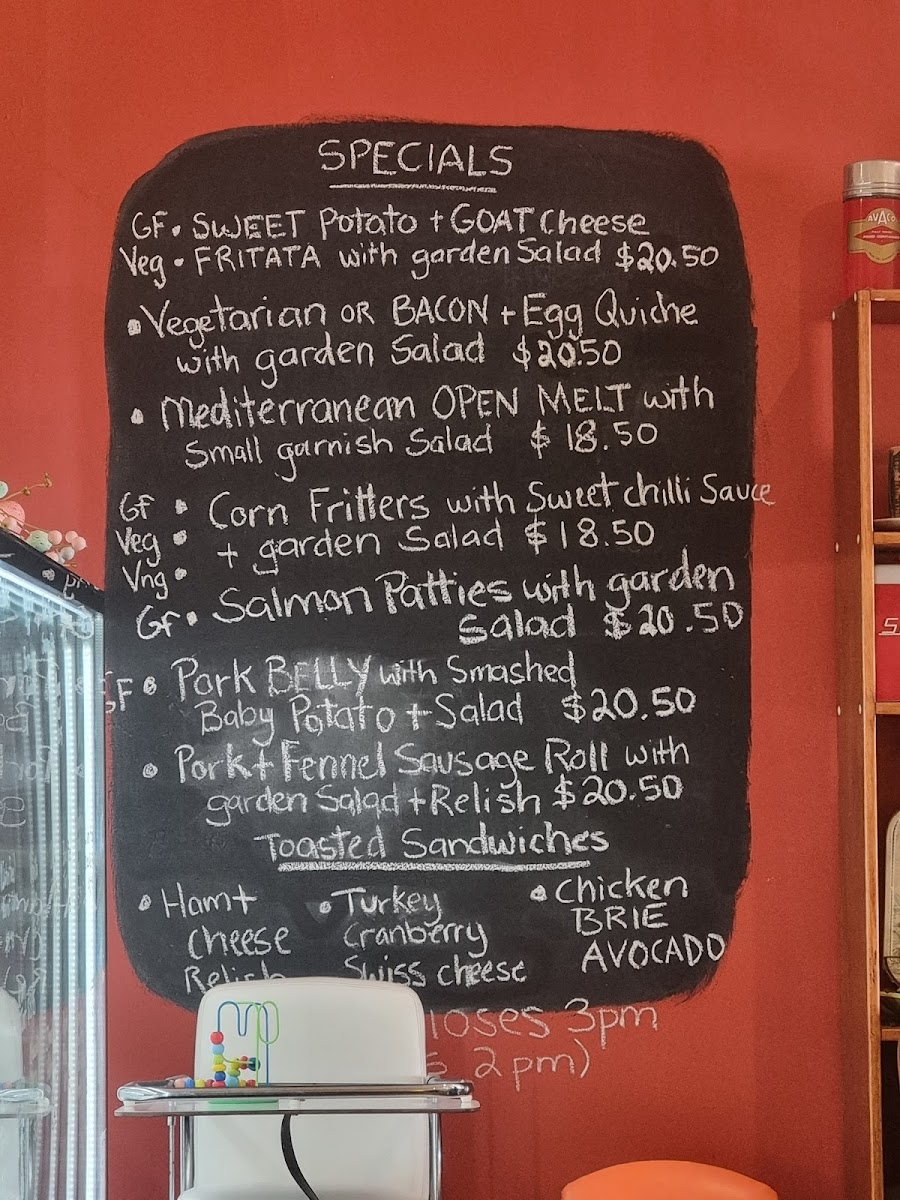 SPECIALS
GF • SWEET Potato + GOAT Cheese
Veg • FRITATA with garden Salad $20.50
• Vegetarian OR BACON + Egg Quiche
with garden Salad $20.50
• Mediterranean OPEN MELT with
Small garnish Salad $18.50
GF • Corn Fritters with Sweet chilli Sauce
Veg • + garden Salad $18.50
Vng •
GF • Salmon Patties with garden
Salad $20.50
GF • Pork BELLY with Smashed
Baby Potato + Salad $20.50
• Pork + Fennel Sausage Roll with
garden Salad + Relish $20.50
Toasted Sandwiches
• Ham +
Cheese
Relish
• Turkey
Cranberry
Swiss cheese
• Chicken
BRIE
AVOCADO
loses 3pm
2pm)
AVACO